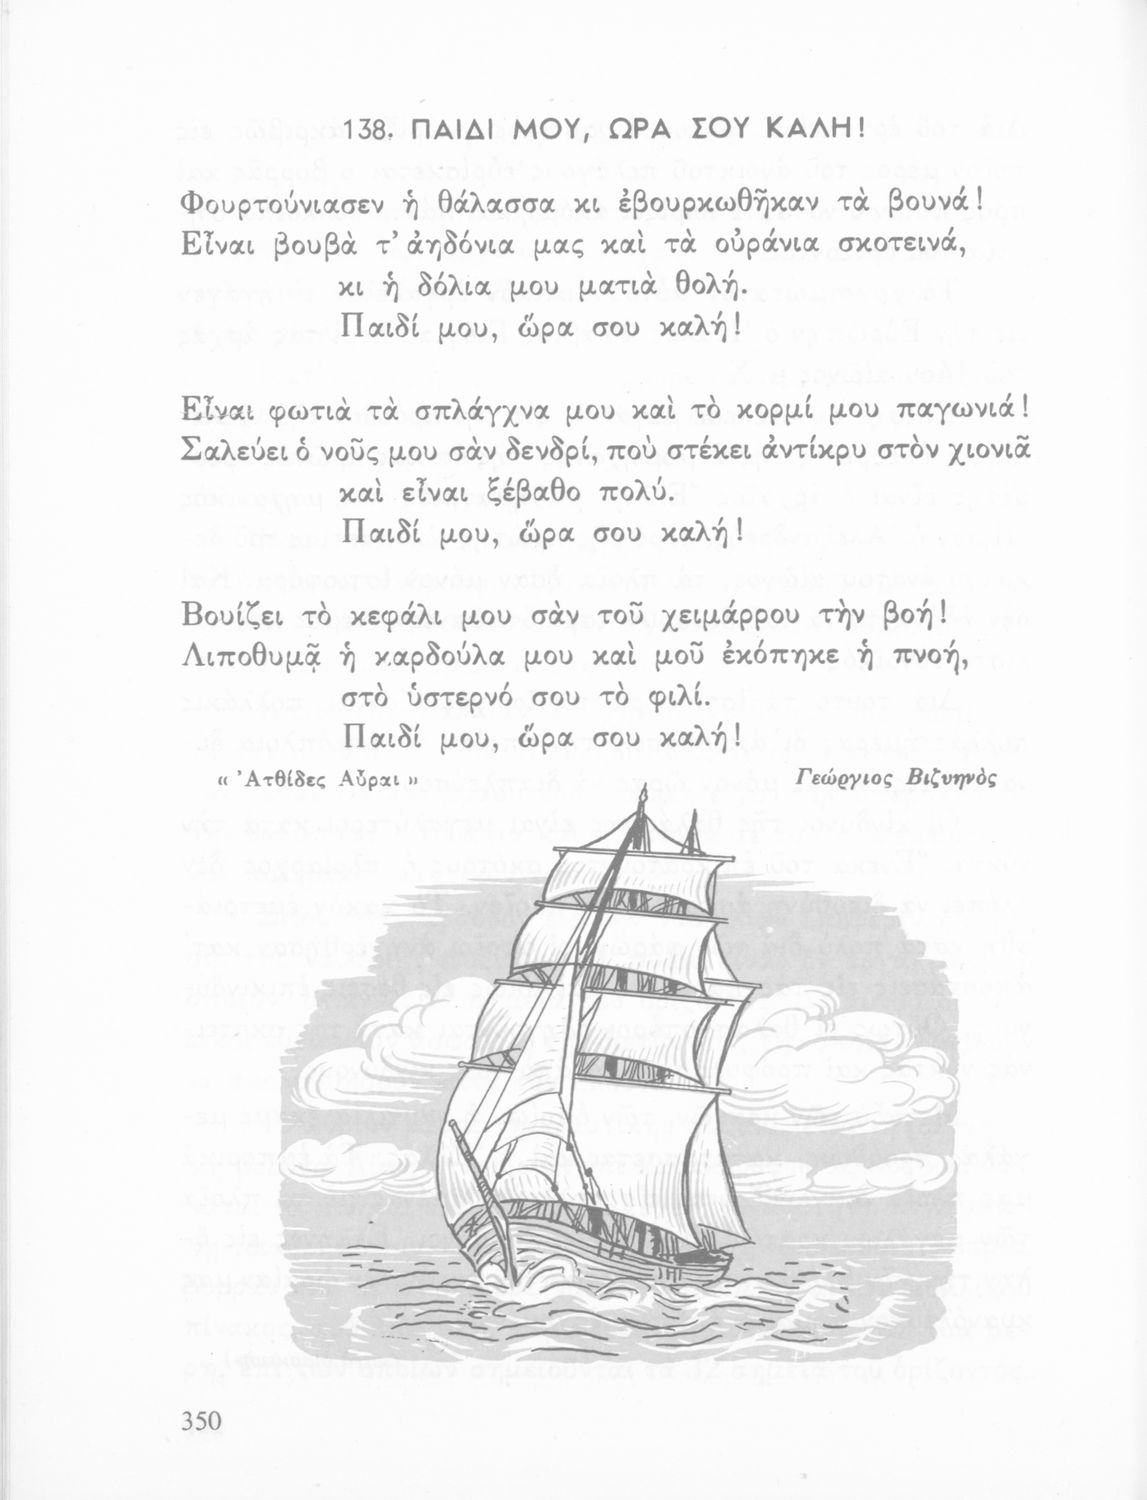 138. ΠΑΙΔΙ ΜΟΥ, ΩΡΑ ΣΟΥ ΚΑΛΗ!
Φουρτούνιασεν ἡ θάλασσα κι ἐβουρκωθῆκαν τὰ βουνά!
Εἶναι βουβὰ τ' ἀηδόνια μας καὶ τὰ οὐράνια σκοτεινά,
κι ἡ δόλια μου ματιὰ θολή.
Παιδί μου, ὥρα σου καλή!
Εἶναι φωτιὰ τὰ σπλάγχνα μου καὶ τὸ κορμί μου παγωνιά!
Σαλεύει ὁ νοῦς μου σὰν δενδρί, ποὺ στέκει ἀντίκρυ στὸν χιονιᾶ
καὶ εἶναι ξέβαθο πολύ.
Παιδί μου, ὥρα σου καλή!
Βουίζει τὸ κεφάλι μου σὰν τοῦ χειμάρρου τὴν βοή!
Λιποθυμᾷ ἡ καρδούλα μου καὶ μοῦ ἐκόπηκε ἡ πνοή,
στὸ ὑστερνό σου τὸ φιλί.
Παιδί μου, ὥρα σου καλή!
« Ἀτθίδες Αὖραι »
Γεώργιος Βιζυηνὸς
350